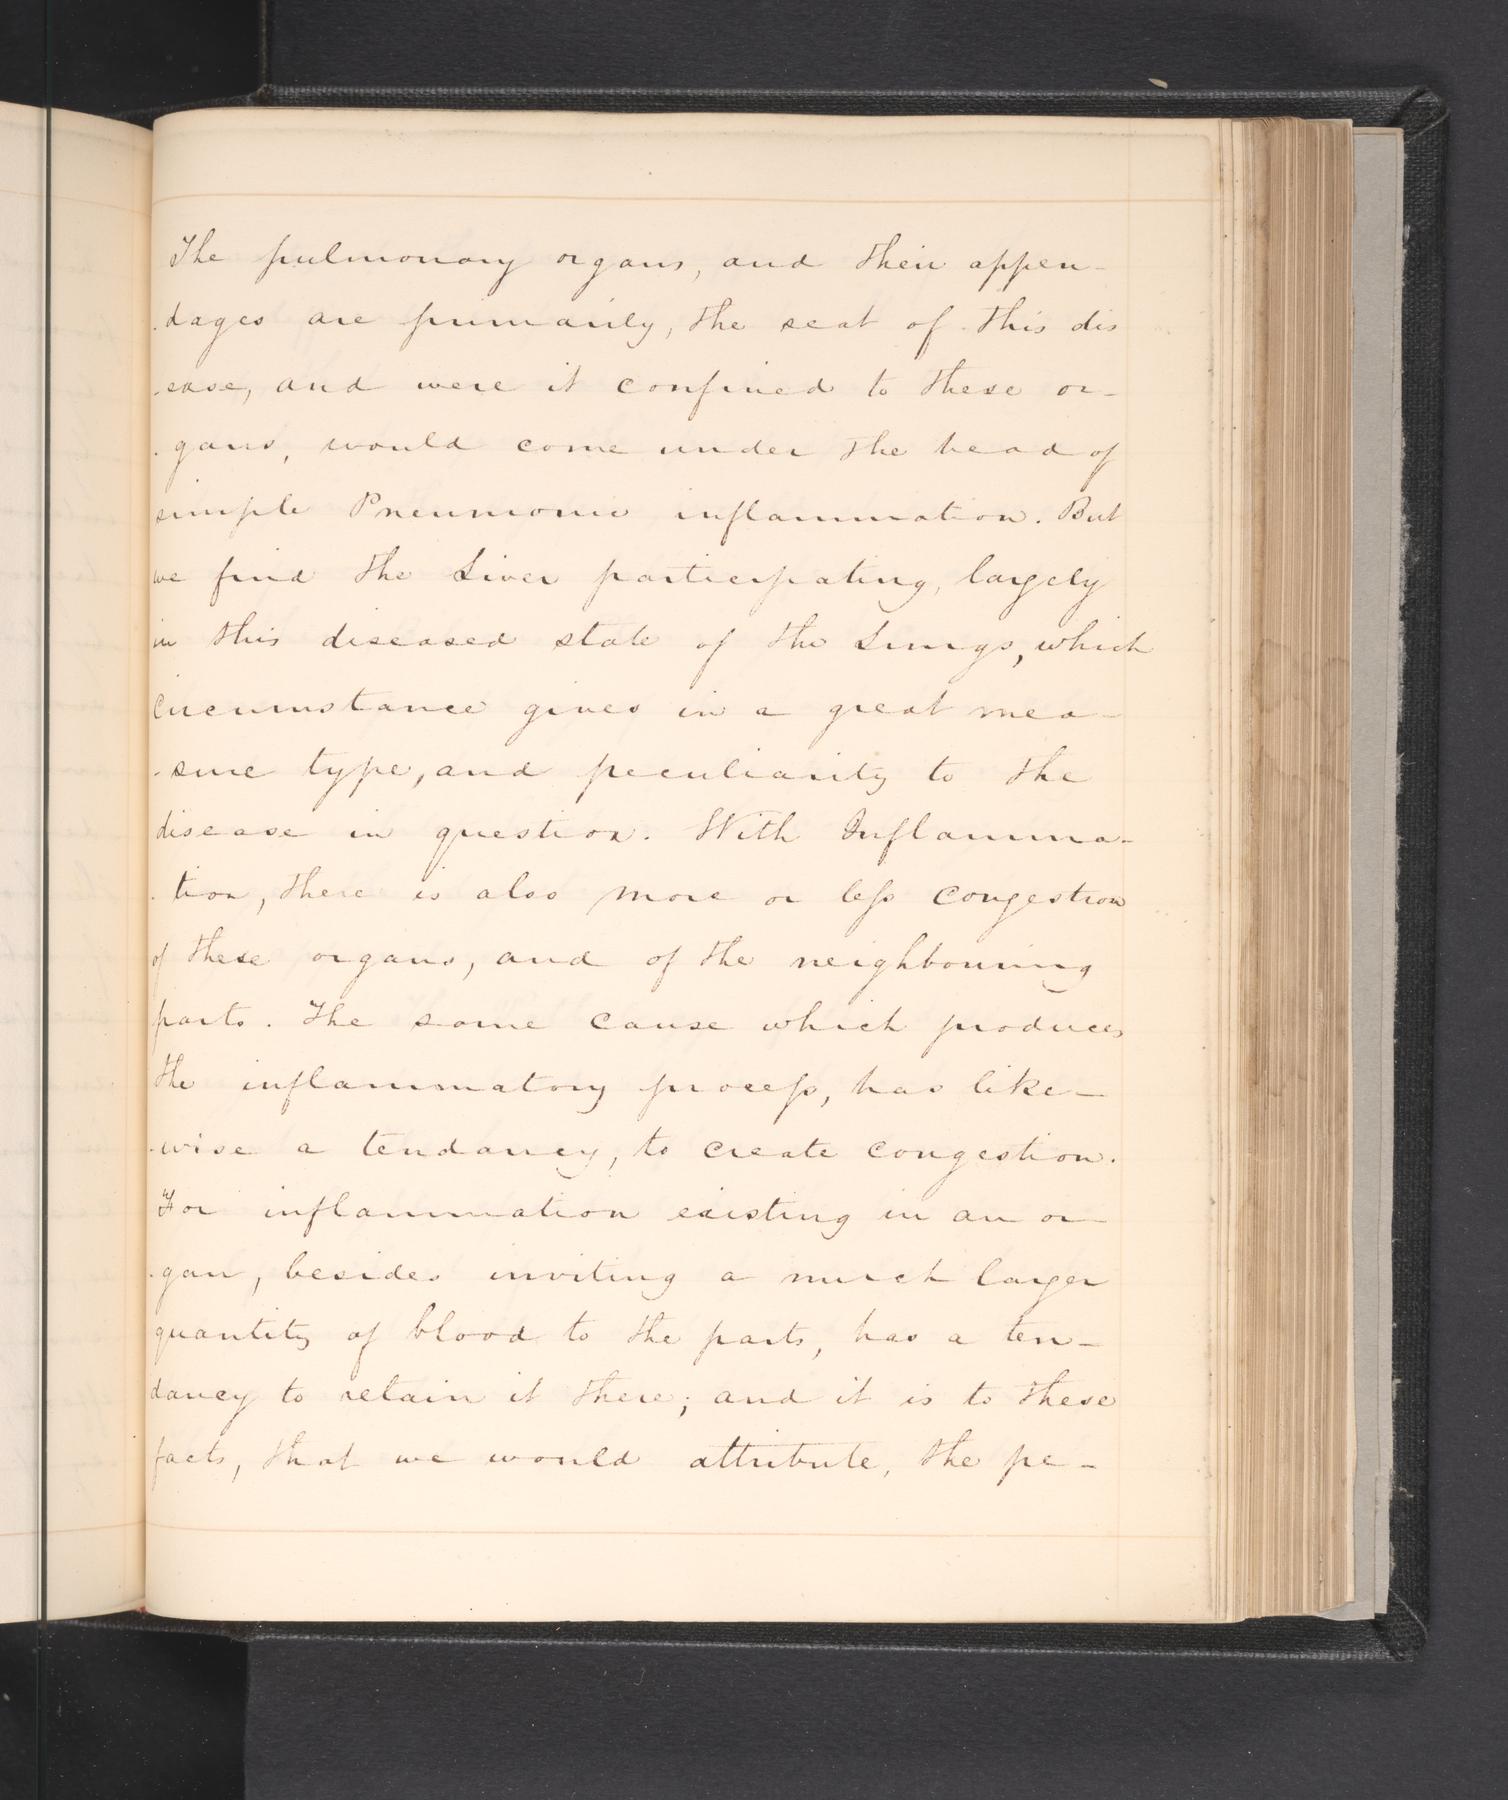 The pulmonary organs, and their appen-
-dages are primarily, the seat of this dis
-ease, and were it confined to these or-
-gans, would come under the head of
simple Pneumonic inflammation. But
we find the Liver participating, largely
in this diseased state of the Lungs, which
circumstance gives in a great mea-
-sure type, and peculiarity to the
disease in question. With Inflamma-
-tion, there is also more or less congestion
of these organs, and of the neighbouring
parts. The same cause which produces
the inflammatory process, has like-
-wise a tendancy, to create congestion.
For inflammation existing in an or-
-gan, besides inviting a much larger
quantity of blood to the parts, has a ten-
dancy to retain it there; and it is to these
facts, that we would attribute, the pe-